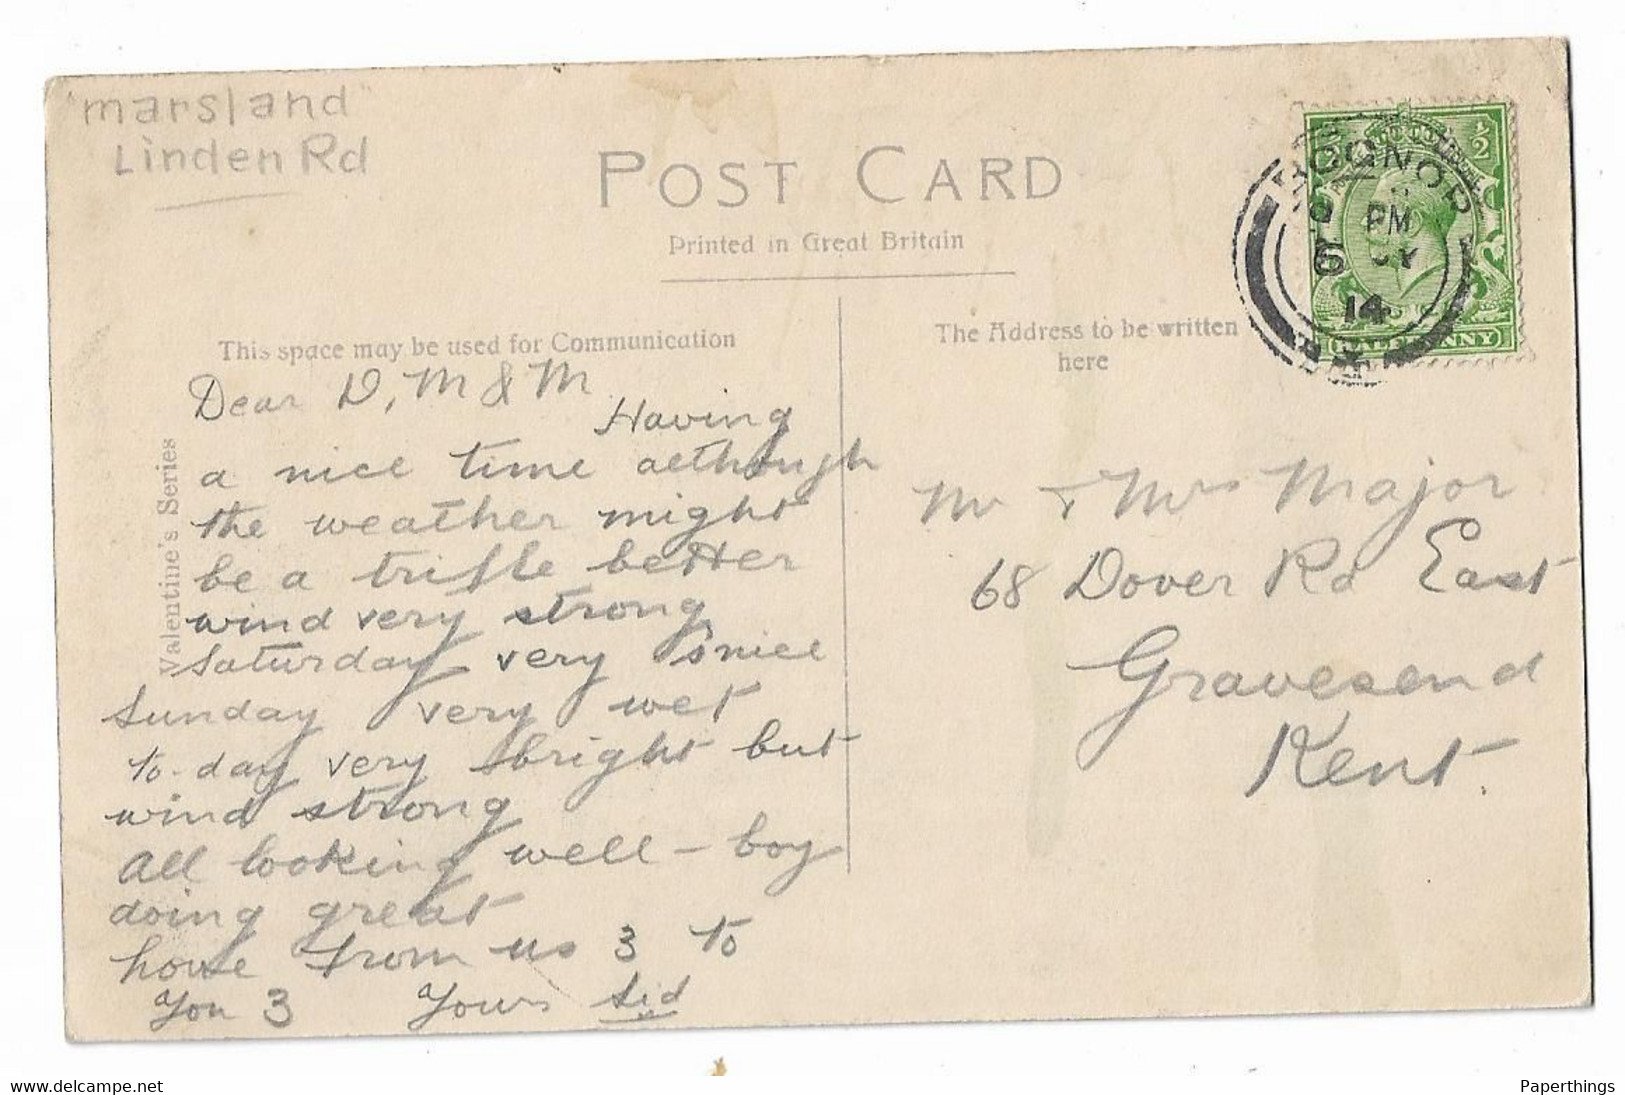 "marsland"
Linden Rd
POST CARD
Printed in Great Britain
This space may be used for Communication
The Address to be written
here
Valentine's Series
Dear D, M & M
Having
a nice time although
the weather might
be a trifle better
wind very strong
Saturday very nice
Sunday very wet
to-day very bright but
wind strong
All looking well - boy
doing great
love from us 3 to
You 3 Yours Sid
Mr & Mrs Major
68 Dover Rd East
Gravesend
Kent.
BOGNOR
PM
6
14
1/2
HALFPENNY
www.delcampe.net
Paperthings